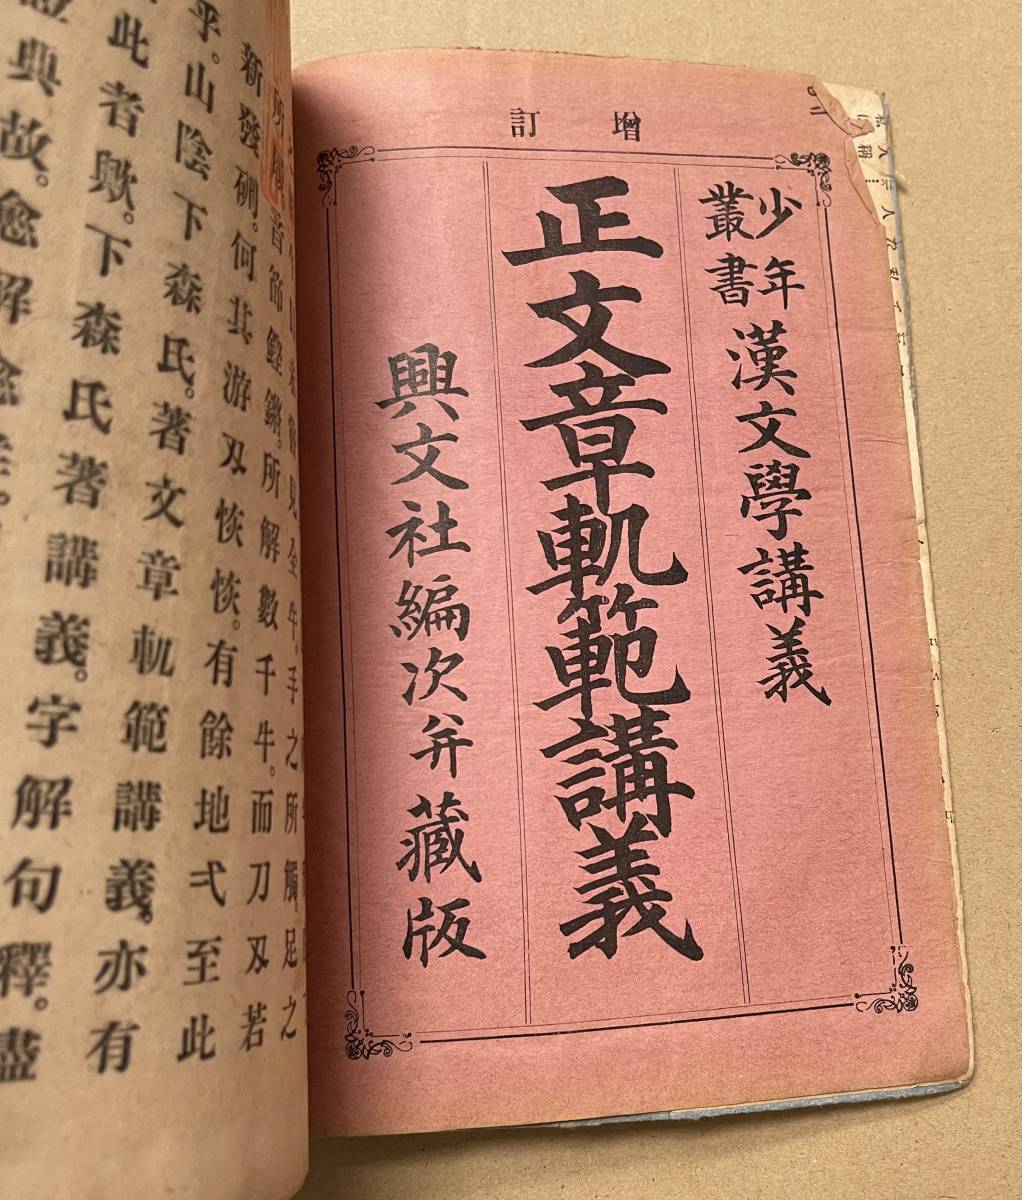 增訂
少年叢書 漢文學講義
正文章軌範講義
興文社編次并藏版
未嘗見全牛。手之所觸足之
音節鏗鏘。所解數千牛。而刀刃若
新發硎。何其游刃恢恢。有餘地弌至此
乎。山陰下森氏。著文章軌範講義。亦有
此者歟。下森氏著講義。字解句釋。盡
典故。愈解愈